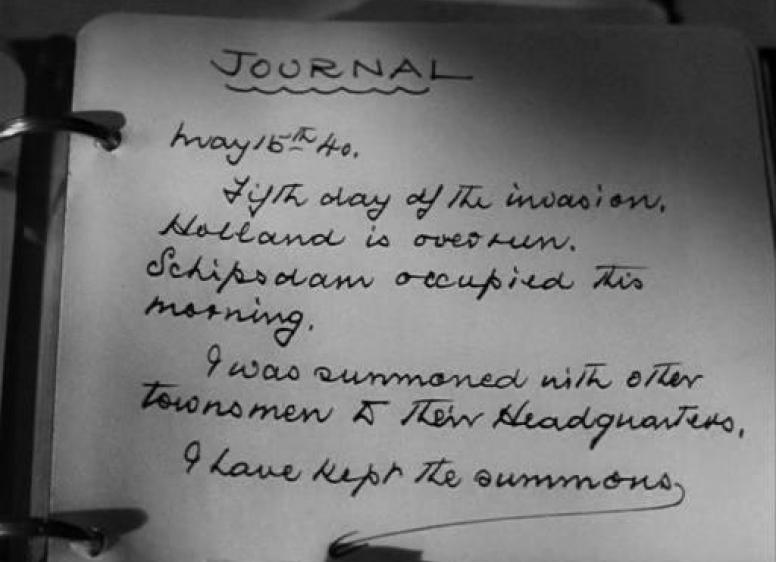 JOURNAL
May 15th 40.
Fifth day of the invasion.
Holland is overrun.
Schipsdam occupied this
morning.
I was summoned with other
townsmen to their Headquarters.
I have kept the summons